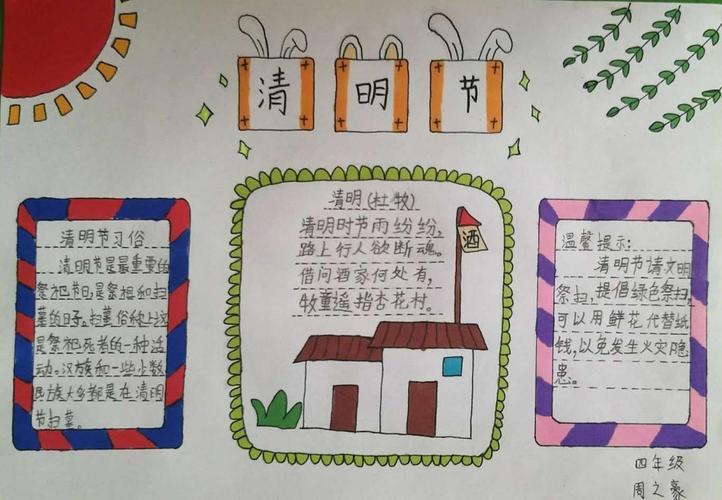 清明节
清明节习俗
清明节是最重要的
祭祀节日,是祭祖和扫
墓的日子。扫墓俗称上坟
是祭祀死者的一种活
动。汉族和一些少数
民族大多都是在清明
节扫墓。
清明(杜牧)
清明时节雨纷纷,
路上行人欲断魂。
借问酒家何处有,
牧童遥指杏花村。
酒
温馨提示:
清明节请文明
祭扫,提倡绿色祭扫,
可以用鲜花代替纸
钱,以免发生火灾隐
患。
四年级
周之豪